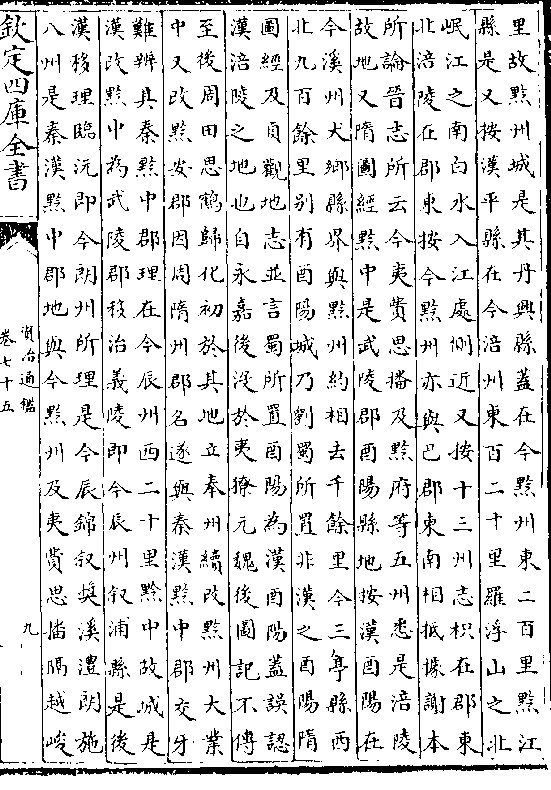 里故黔州城是其丹興縣蓋在今黔州東二百里黔江
縣是又按漢平縣在今涪州東百二十里羅浮山之北
岷江之南白水入江處側近又按十三州志枳在郡東
北涪陵在郡東按今黔州亦與巴郡東南相抵據謝本
所論晉志所云今夷費思播及黔府等五州悉是涪陵
故地又隋圖經黔中是武陵郡酉陽縣地按漢酉陽在
今溪州大鄉縣界與黔州約相去千餘里今三亭縣西
北九百餘里别有酉陽城乃劉蜀所置非漢之酉陽隋
圖經及貞觀地志並言蜀所置酉陽為漢酉陽蓋誤認
漢涪陵之地也自永嘉後没於夷獠元魏後圖記不傳
至後周田思鶴歸化初於其地立奉州續改黔州大業
中又改黔安郡因周隋州郡名遂與秦漢黔中郡交牙
難辨其秦黔中郡理在今辰州西二十里黔中故城是
漢改黔中為武陵郡移治義陵即今辰州叙浦縣是後
漢移理臨沅即今朗州所理是今辰錦叙奬溪澧朗施
八州是秦漢黔中郡地與今黔州及夷費思播隔越峻
欽定四庫全書
資治通鑑
卷七十五
九